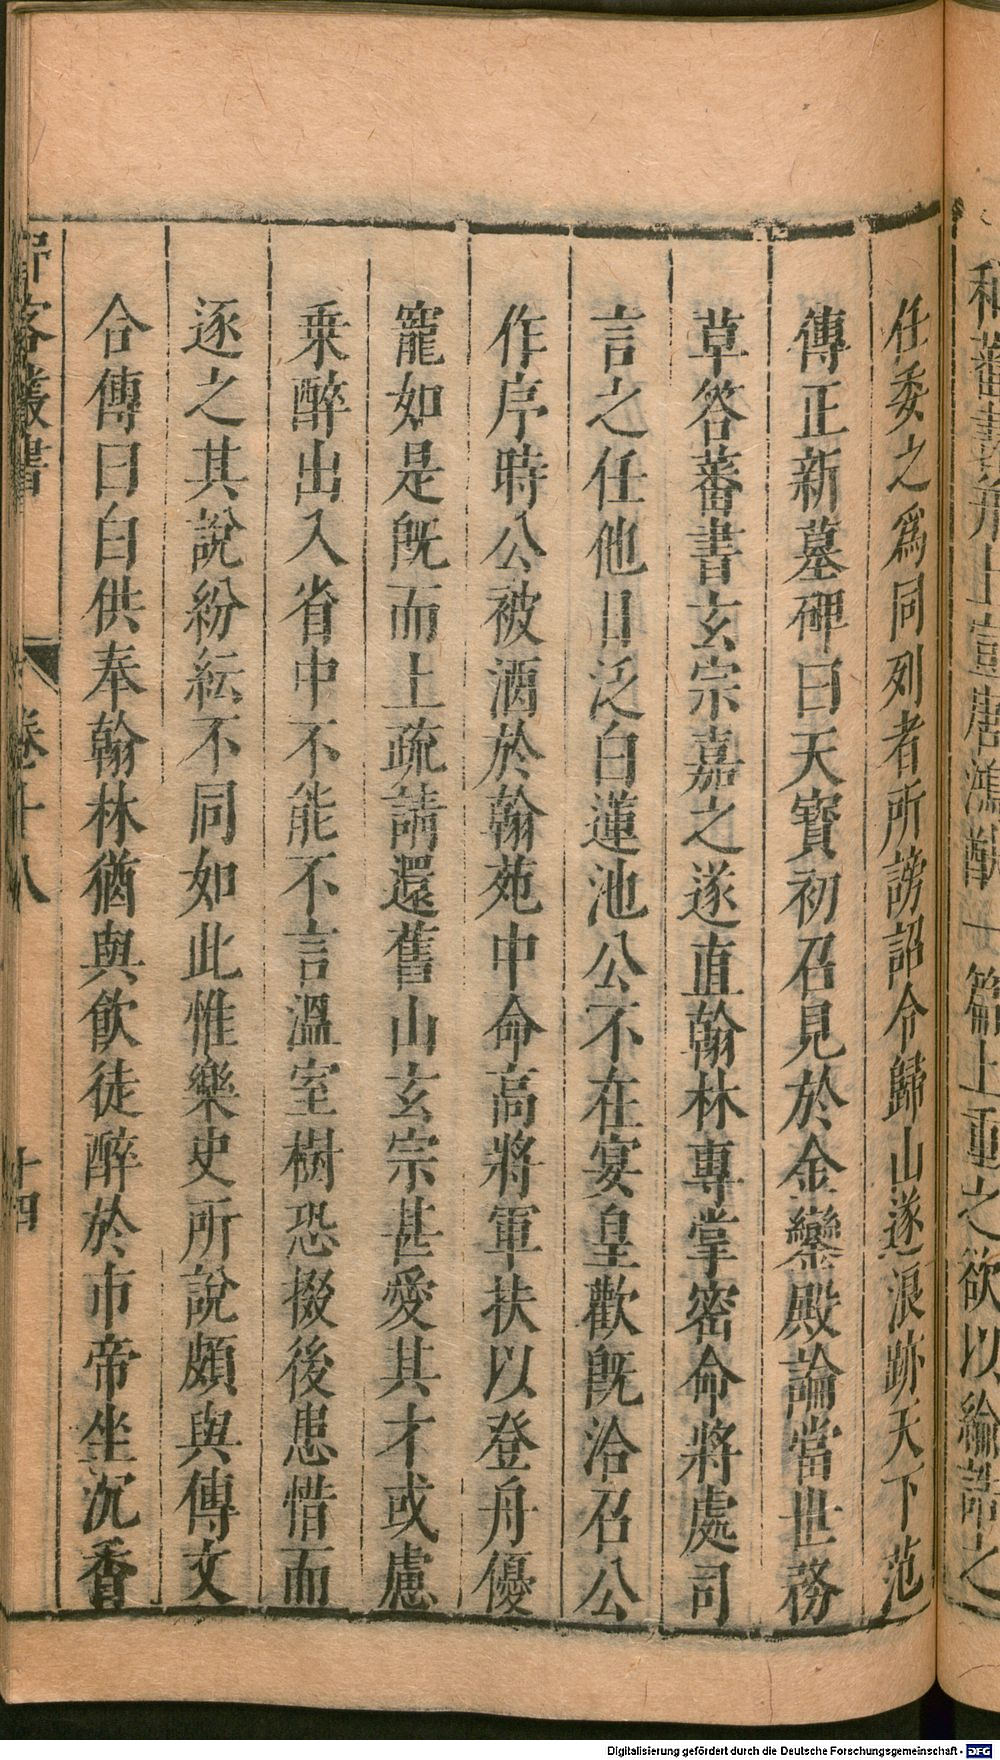 和蕃書并上宣唐鴻猷一篇上重之欲以綸誥之
任委之爲同列者所謗詔令歸山遂浪跡天下范
傳正新墓碑曰天寶初召見於金鑾殿論當世務
草答蕃書玄宗嘉之遂直翰林專掌密命將處司
言之任他日泛白蓮池公不在宴皇歡既洽召公
作序時公被酒於翰苑中命高將軍扶以登舟優
寵如是既而上疏請還舊山玄宗甚愛其才或慮
乗醉出入省中不能不言溫室樹恐掇後患惜而
逐之其說紛紜不同如此惟樂史所說頗與傳文
合傳曰白供奉翰林猶與飲徒醉於市帝坐沉香
野客叢書 卷十八 十四
Digitalisierung gefördert durch die Deutsche Forschungsgemeinschaft - DFG